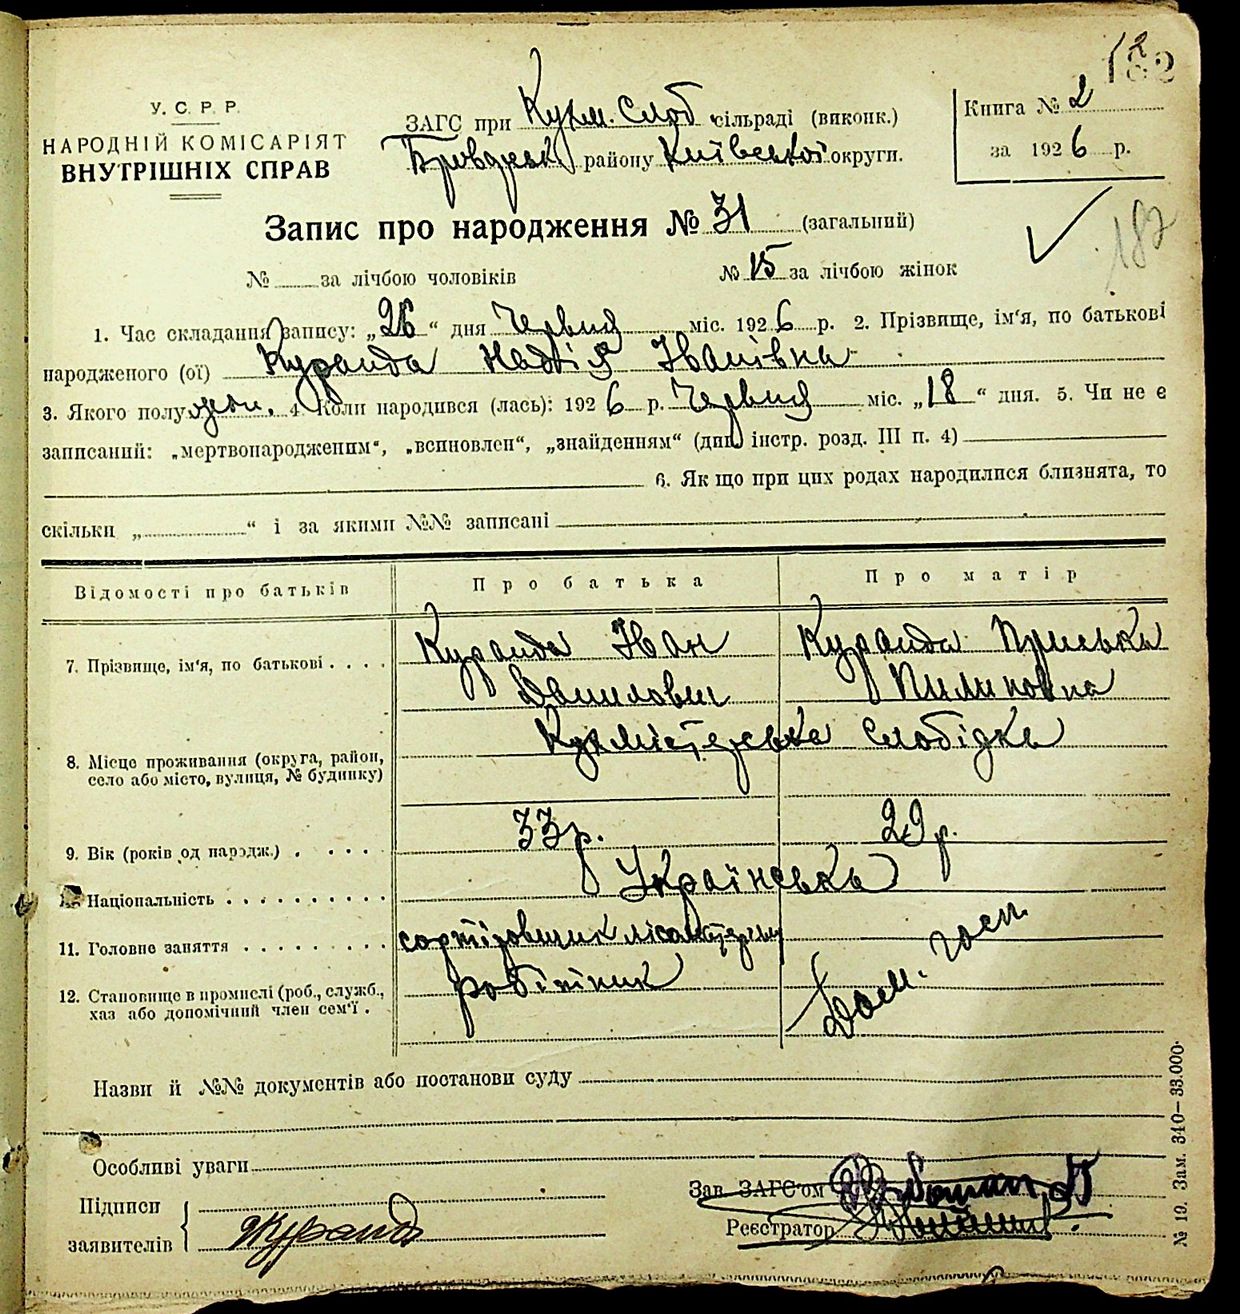 182
У. С. Р. Р.
НАРОДНІЙ КОМІСАРІЯТ
ВНУТРІШНІХ СПРАВ
ЗАГС при Кухм. Слоб. сільраді (викопк.)
Броварськ району Київської округи.
Книга № 2
за 1926 р.
Запис про народження № 31 (загальний)
187
№ за лічбою чоловіків № 15 за лічбою жінок
1. Час складання запису: „26“ дня Червня міс. 1926 р. 2. Прізвище, ім'я, по батькові
народженого (ої) Куранда Надія Іванівна
3. Якого полу жен. 4. Коли народився (лась): 1926 р. Червня міс. „18“ дня. 5. Чи не є
записаний: „мертвонародженим“, „всиновлен“, „знайденням“ (див. інстр. розд. III п. 4)
6. Як що при цих родах народилися близнята, то
скільки „ “ і за якими №№ записані
Відомості про батьків Про батька Про матір
7. Прізвище, ім'я, по батькові . . . . Куранда Іван Куранда Приська
Данилович Пилиповна
Кухмістерська Слобідка
8. Місце проживання (округа, район,
село або місто, вулиця, № будинку)
9. Вік (років од народж.) . . . . . 33 р. 29 р.
Національність . . . . . . . . . . Українська
11. Головне заняття . . . . . . . . сортіровщик
12. Становище в промислі (роб., служб.,
хаз або допомічний член сем'ї . робітник Дом. госп.
Назви й №№ документів або постанови суду
Особливі уваги
Підписи
заявителів Куранда
Зав. ЗАГС'ом
Реєстратор
№ 19. Зам. 340—33.000.